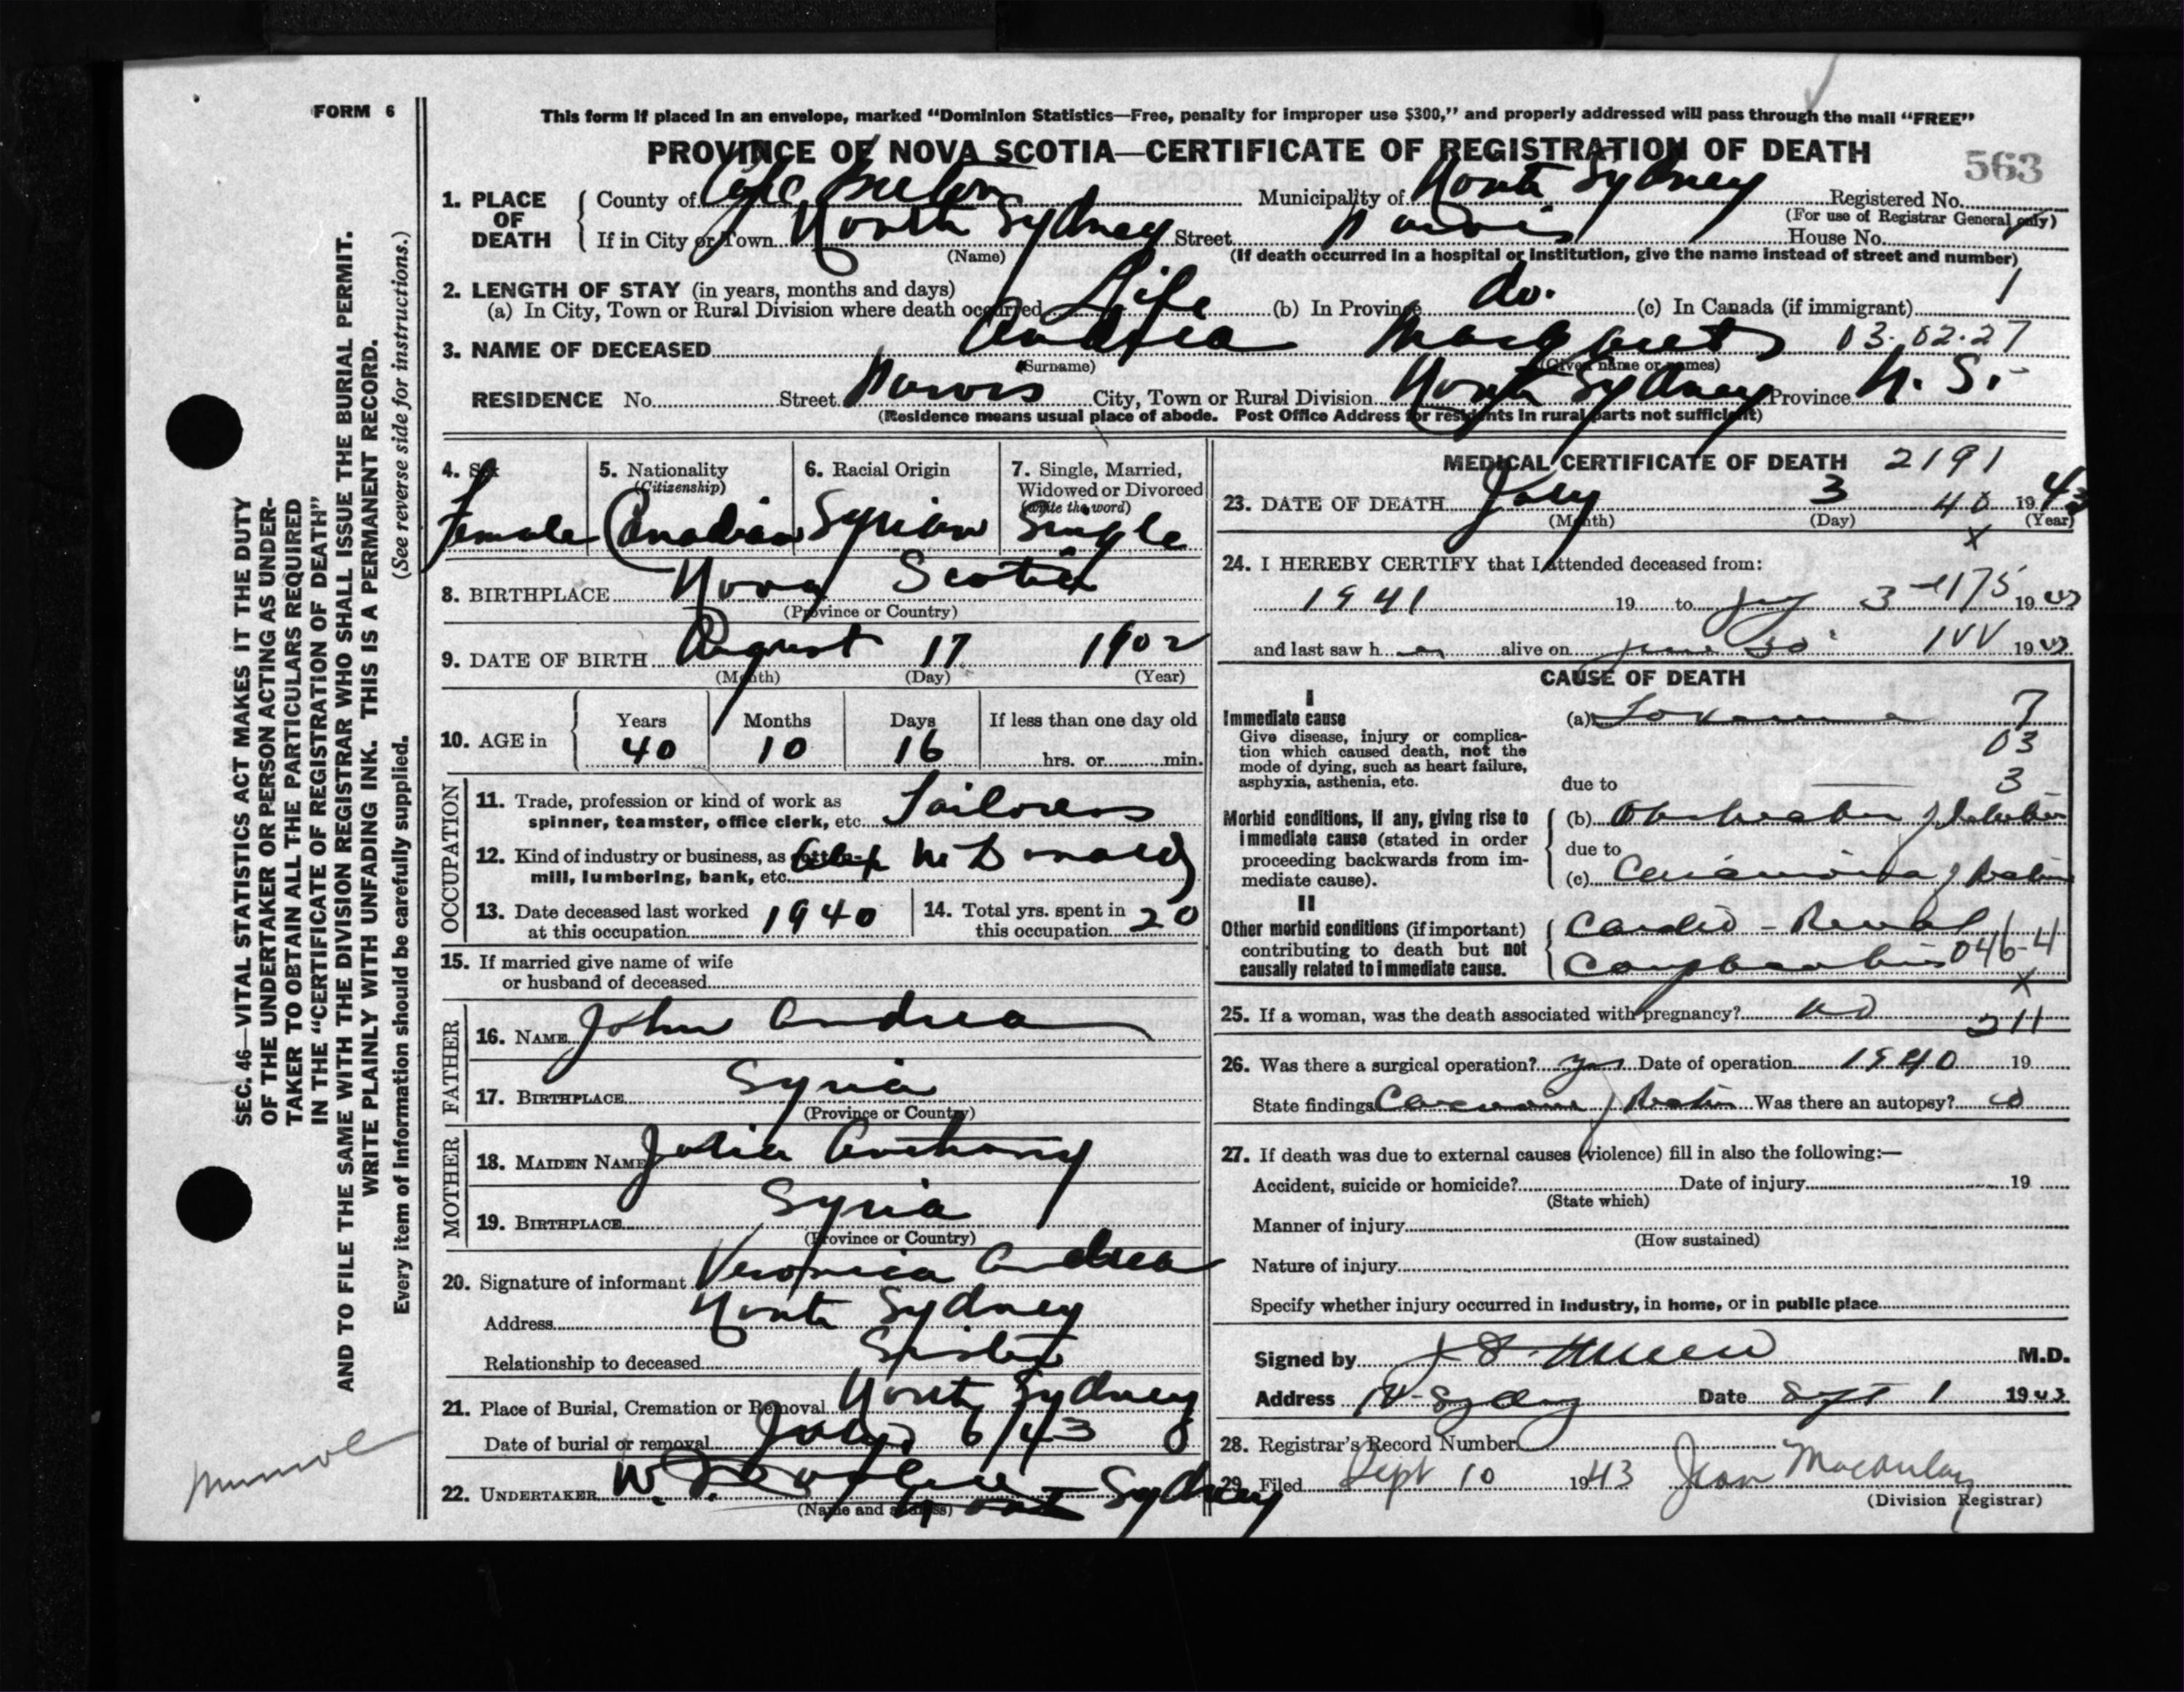 FORM 6
This form if placed in an envelope, marked "Dominion Statistics—Free, penalty for improper use $300," and properly addressed will pass through the mail "FREE"
PROVINCE OF NOVA SCOTIA—CERTIFICATE OF REGISTRATION OF DEATH
563
1. PLACE OF DEATH
County of Cape Breton Municipality of North Sydney Registered No.
(For use of Registrar General only)
If in City or Town North Sydney Street House No.
(Name)
(If death occurred in a hospital or institution, give the name instead of street and number)
2. LENGTH OF STAY (in years, months and days)
(a) In City, Town or Rural Division where death occurred Life (b) In Province do. (c) In Canada (if immigrant) 1
3. NAME OF DECEASED Andrea Margaret 03.02.27
(Surname) (Given name or names)
RESIDENCE No. Street City, Town or Rural Division North Sydney Province N.S.
(Residence means usual place of abode. Post Office Address for residents in rural parts not sufficient)
4. Sex Female
5. Nationality (Citizenship) Canadian
6. Racial Origin Syrian
7. Single, Married, Widowed or Divorced (write the word) Single
8. BIRTHPLACE Nova Scotia
(Province or Country)
9. DATE OF BIRTH August 17 1902
(Month) (Day) (Year)
10. AGE in Years 40 Months 10 Days 16 If less than one day old hrs. or min.
OCCUPATION
11. Trade, profession or kind of work as spinner, teamster, office clerk, etc. Tailoress
12. Kind of industry or business, as mill, lumbering, bank, etc. McDonald
13. Date deceased last worked at this occupation 1940
14. Total yrs. spent in this occupation 20
15. If married give name of wife or husband of deceased
FATHER
16. NAME John Andrea
17. BIRTHPLACE Syria
(Province or Country)
MOTHER
18. MAIDEN NAME Julia Anthony
19. BIRTHPLACE Syria
(Province or Country)
20. Signature of informant Veronica Andrea
Address North Sydney
Relationship to deceased Sister
21. Place of Burial, Cremation or Removal North Sydney
Date of burial or removal July 6/43
22. UNDERTAKER W. J. North Sydney
(Name and address)
MEDICAL CERTIFICATE OF DEATH 2191
23. DATE OF DEATH July 3 40 1943
(Month) (Day) (Year)
x
24. I HEREBY CERTIFY that I attended deceased from:
1941 19 to July 3 1175 1943
and last saw h er alive on June 30 1943
CAUSE OF DEATH
I
Immediate cause
Give disease, injury or complication which caused death, not the mode of dying, such as heart failure, asphyxia, asthenia, etc.
(a) Toxaemia 7
03
due to 3
Morbid conditions, if any, giving rise to immediate cause (stated in order proceeding backwards from immediate cause).
(b) Obstruction of
due to
(c) Carcinoma of Rectum
II
Other morbid conditions (if important) contributing to death but not causally related to immediate cause.
Cardio-Renal
Complication 046-4
x
25. If a woman, was the death associated with pregnancy? no 211
26. Was there a surgical operation? yes Date of operation 1940 19
State findings Carcinoma of Rectum Was there an autopsy? no
27. If death was due to external causes (violence) fill in also the following:—
Accident, suicide or homicide? Date of injury 19
(State which)
Manner of injury
(How sustained)
Nature of injury
Specify whether injury occurred in industry, in home, or in public place
Signed by M.D.
Address N. Sydney Date Sept 1 1943
28. Registrar's Record Number
29. Filed Sept 10 1943 Jean Macaulay
(Division Registrar)
SEC. 46—VITAL STATISTICS ACT MAKES IT THE DUTY
OF THE UNDERTAKER OR PERSON ACTING AS UNDER-
TAKER TO OBTAIN ALL THE PARTICULARS REQUIRED
IN THE "CERTIFICATE OF REGISTRATION OF DEATH"
AND TO FILE THE SAME WITH THE DIVISION REGISTRAR WHO SHALL ISSUE THE BURIAL PERMIT.
WRITE PLAINLY WITH UNFADING INK. THIS IS A PERMANENT RECORD.
Every item of information should be carefully supplied. (See reverse side for instructions.)